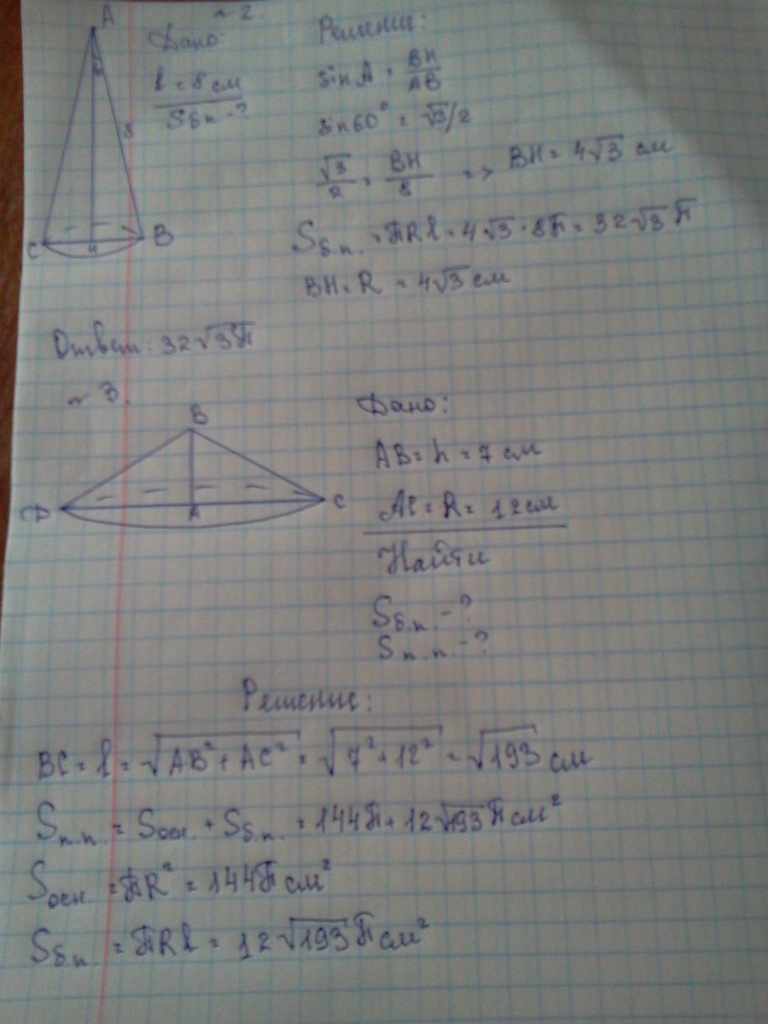 ~ 2.
A
Дано:
l = 8 см
Sб.п. - ?
8
C
H
B
Решение:
sin A = BH/AB
sin 60° = √3/2
√3/2 = BH/8 => BH = 4√3 см
Sб.п. = πRl = 4√3 · 8π = 32√3 π
BH = R = 4√3 см
Ответ: 32√3π
~ 3.
B
D
A
C
Дано:
AB = h = 7 см
AC = R = 12 см
Найти
Sб.п. - ?
Sп.п. - ?
Решение:
BC = l = √AB² + AC² = √7² + 12² = √193 см
Sп.п. = Sосн. + Sб.п. = 144π + 12√193 π см²
Sосн. = πR² = 144π см²
Sб.п. = πRl = 12√193 π см²